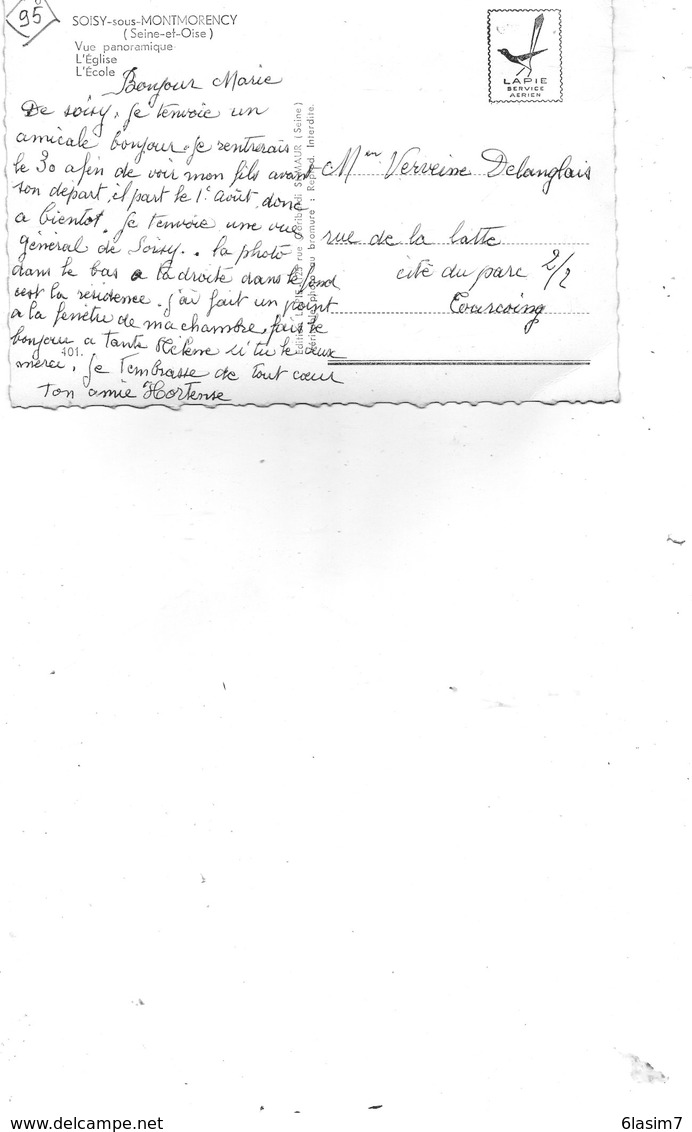 95
SOISY-sous-MONTMORENCY
(Seine-et-Oise)
Vue panoramique
L'Église
L'École
LAPIE
SERVICE
AÉRIEN
Bonjour Marie
De soisy, je t'envoie un
amicale bonjour. je rentrerais
le 30 afin de voir mon fils avant
son depart, il part le 1e août, donc
a bientot. je t'envoie une vue
général de Soisy. . la photo
dans le bas a la droite dans le fond
cest la résidence. j'ai fait un point
a la fenêtre de ma chambre, fais le
bonjour a tante Hélène si tu le veux
merci, je t'embrasse de tout cœur
ton amie Hortense
401.
Mme Verveine Delanglais
rue de la latte
cité du parc 2/2
Tourcoing
(Seine)
: Reprod. Interdite.
Delcampe.net
6lasim7